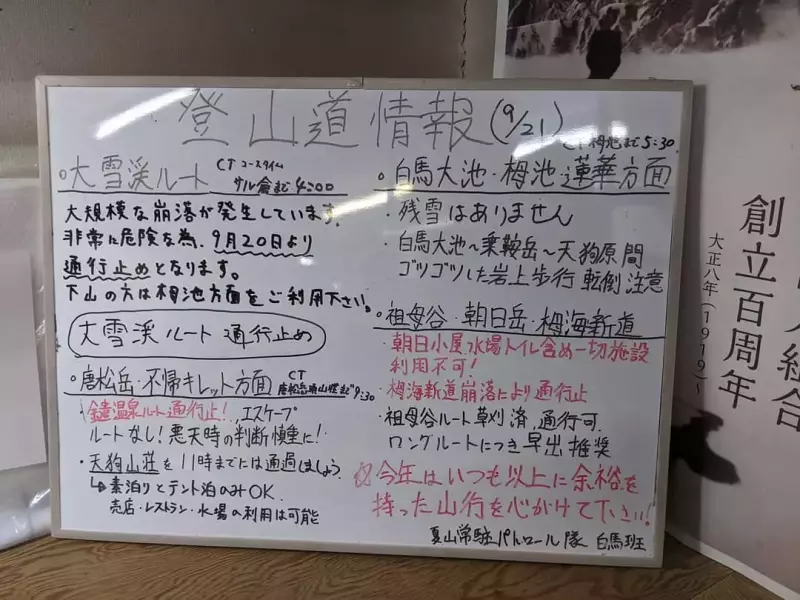 登山道情報(9/21)
○大雪渓ルート CT コースタイム
サル倉まで4:00
大規模な崩落が発生しています。
非常に危険な為、9月20日より
通行止めとなります。
下山の方は栂池方面をご利用下さい。
大雪渓ルート 通行止め
○唐松岳・不帰キレット方面 CT
唐松岳頂上山荘まで9:30
・鑓温泉ルート通行止!、エスケープ
ルートなし!悪天時の判断慎重に!
・天狗山荘を11時までには通過しましょう
↳素泊りとテント泊のみOK.
売店・レストラン・水場の利用は可能
CT 栂池まで5:30.
○白馬大池・栂池・蓮華方面
・残雪はありません
・白馬大池～乗鞍岳～天狗原間
ゴツゴツした岩上歩行 転倒注意
○祖母谷・朝日岳・栂海新道
・朝日小屋水場トイレ含め一切施設
利用不可!
・栂海新道崩落により通行止
・祖母谷ルート草刈済,通行可.
ロングルートにつき早出推奨
☆今年はいつも以上に余裕を
持った山行を心がけて下さい!
夏山常駐パトロール隊 白馬班
創立百周年
大正八年(1919)～
人組合